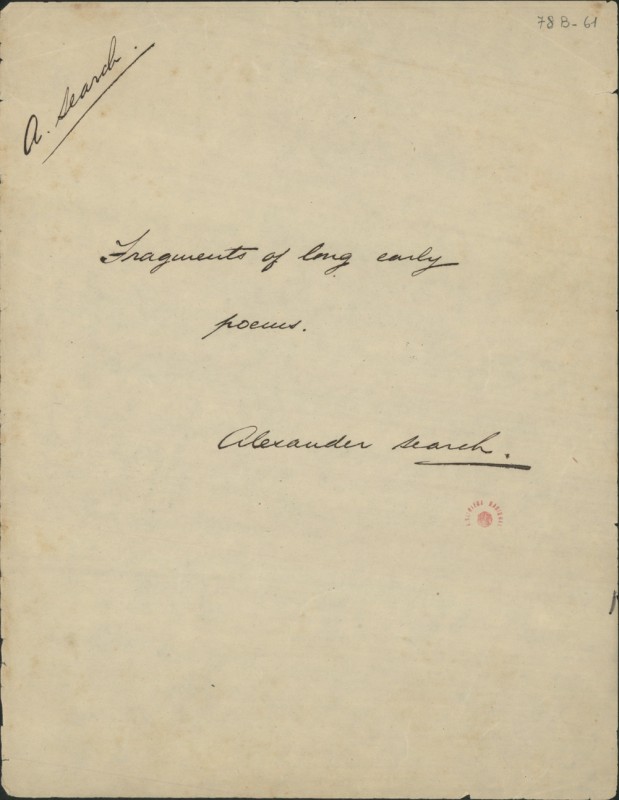 78B-61
A. Search.
Fragments of long early
poems.
Alexander Search.